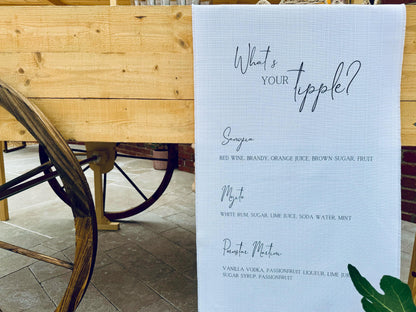 What's
YOUR tipple?
Sangria
RED WINE, BRANDY, ORANGE JUICE, BROWN SUGAR, FRUIT
Mojito
WHITE RUM, SUGAR, LIME JUICE, SODA WATER, MINT
Pornstar Martini
VANILLA VODKA, PASSIONFRUIT LIQUEUR, LIME JUICE
SUGAR SYRUP, PASSIONFRUIT